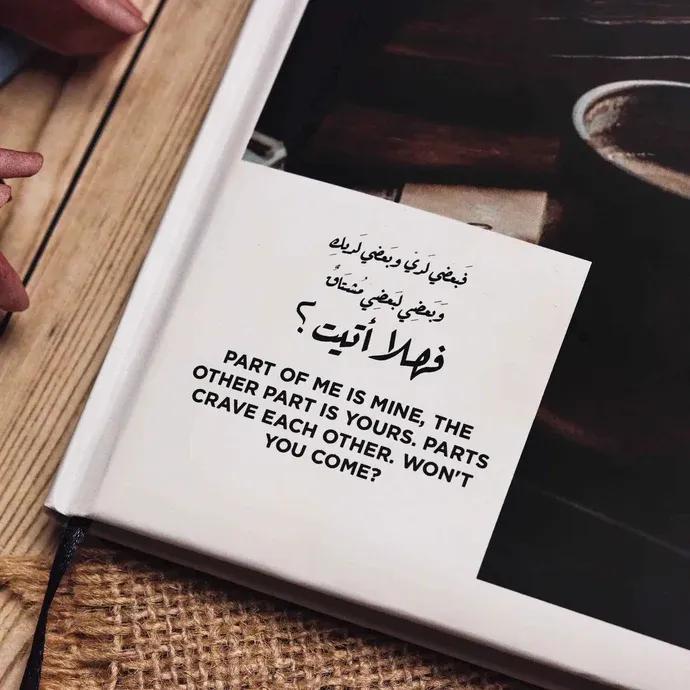 فَبعضي لَديَّ وبَعضي لَديكِ
وَبَعضِي لبَعضِي مُشتَاقٌ
فهلا أتيت ؟
PART OF ME IS MINE, THE
OTHER PART IS YOURS. PARTS
CRAVE EACH OTHER. WON'T
YOU COME?